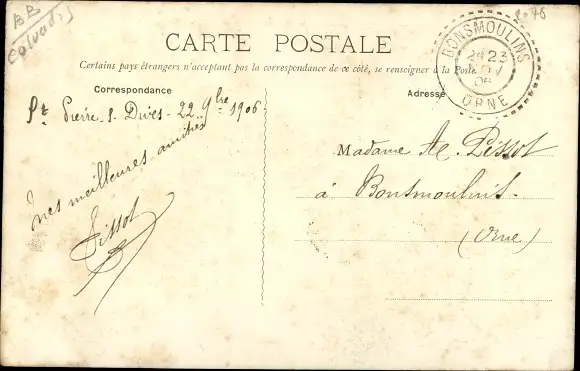 BB
Calvados
8.76
CARTE POSTALE
Certains pays étrangers n'acceptant pas la correspondance de ce côté, se renseigner à la Poste
BONSMOULINS
2E 23
ORNE
Correspondance
Adresse
St Pierre s. Dives - 22 9bre 1906
mes meilleures amitiés
Tissot
Madame
à Bonsmoulins.
(Orne)